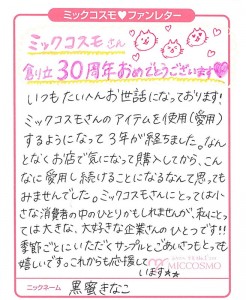 ミックコスモ♥ファンレター
ミックコスモさん
創立30周年おめでとうございます♡
いつもたいへんお世話になっております!
ミックコスモさんのアイテムを使用(愛用)
するようになって3年が経ちました。なん
となくお店で気になって購入してから、こん
なに愛用し続けることになるなんて思っても
みませんでした。ミックコスモさんにとっては小
さな消費者の中のひとりかもしれませんが、私にとっ
ては大きな、大好きな企業さんのひとつです!!
季節ごとにいただくサンプルとごあいさつもとっても
嬉しいです。これからも応援して
います★★
MICCOSMO
ニックネーム
黒蜜きなこ